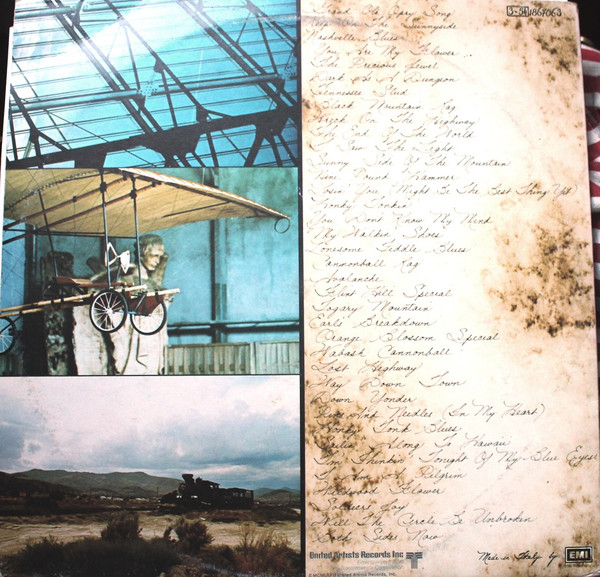 Grand Ole Opry Song
The Sunnyside
Nashville Blues
You Are My Flower
The Precious Jewel
Dark As A Dungeon
Tennessee Stud
Black Mountain Rag
Wreck On The Highway
The End Of The World
I Saw The Light
Sunny Side Of The Mountain
Nine Pound Hammer
Losin' You (Might Be The Best Thing Yet)
Honky Tonkin'
You Don't Know My Mind
My Walkin' Shoes
Lonesome Fiddle Blues
Cannonball Rag
Avalanche
Flint Hill Special
Togary Mountain
Earl's Breakdown
Orange Blossom Special
Wabash Cannonball
Lost Highway
Way Down Town
Down Yonder
Pins And Needles (In My Heart)
Honky Tonk Blues
Sailin' Along To Hawaii
I'm Thinkin' Tonight Of My Blue Eyes
I Am A Pilgrim
Wildwood Flower
Soldier's Joy
Will The Circle Be Unbroken
Both Sides Now
United Artists Records Inc
Made in Italy by EMI